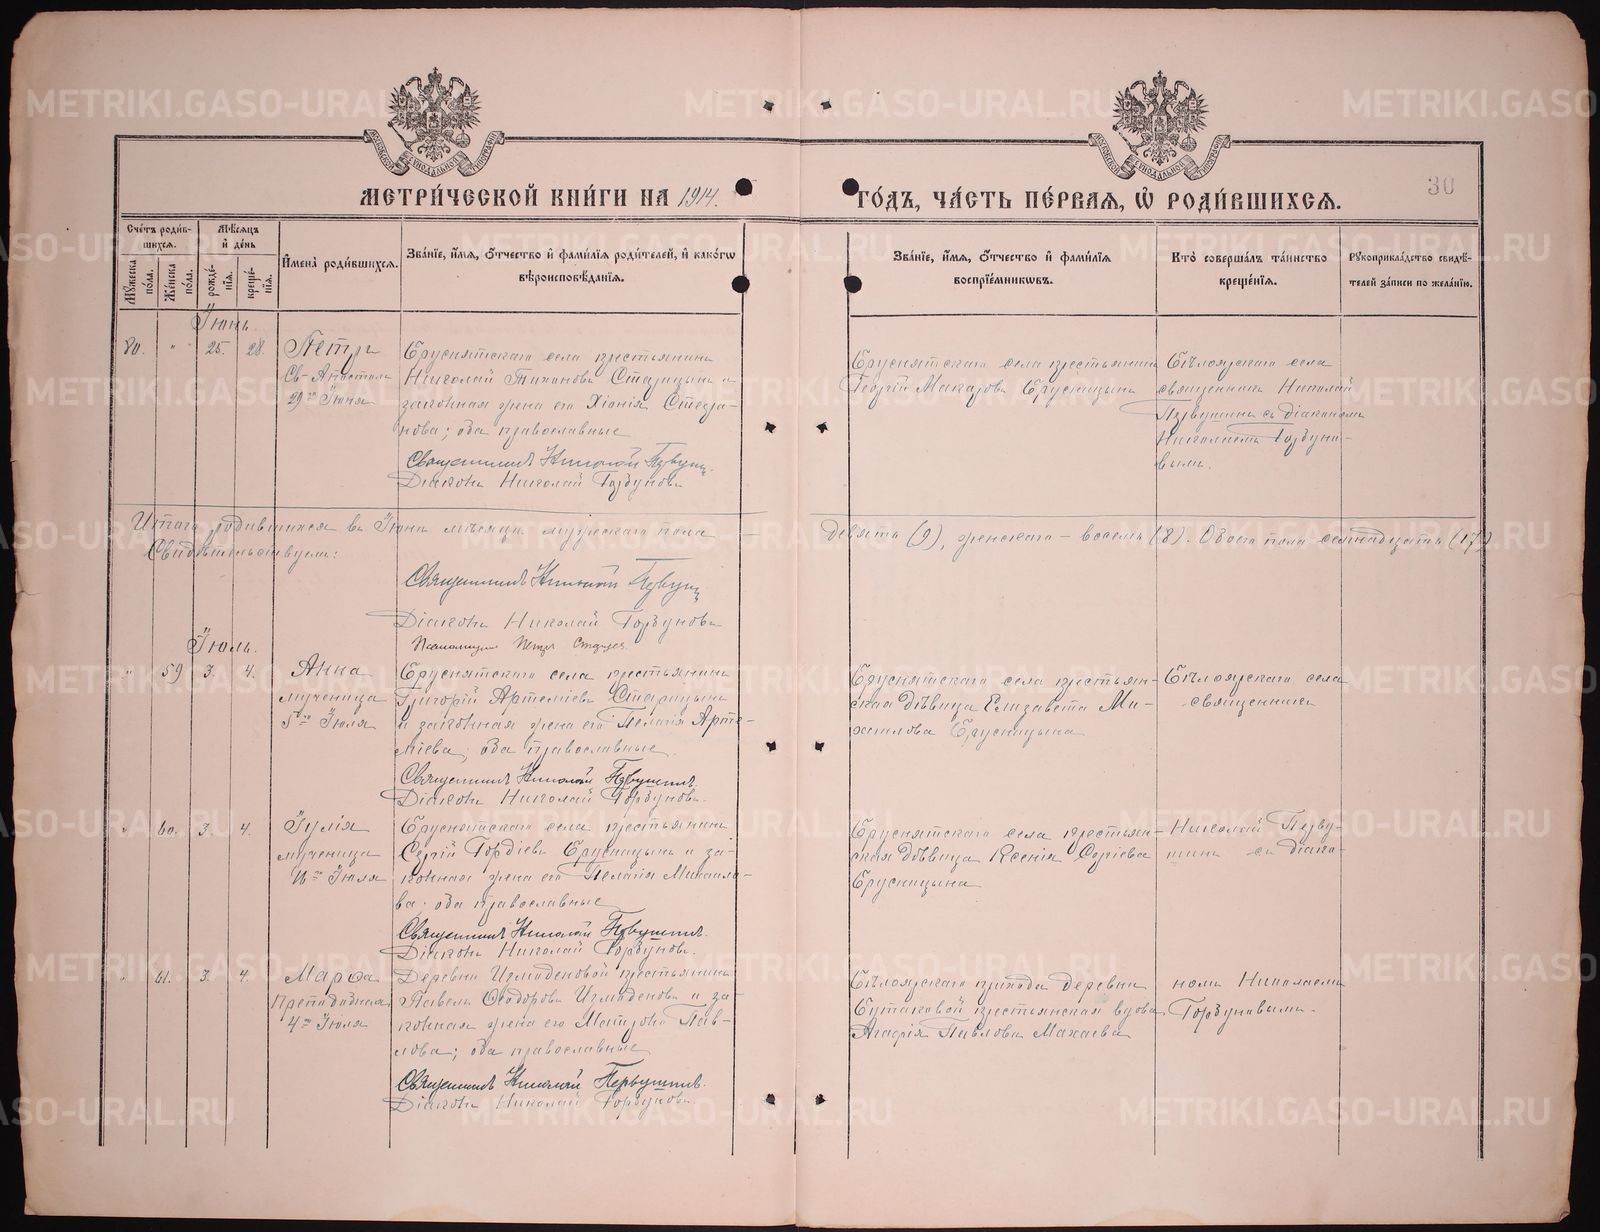 МЕТРИЧЕСКОЙ КНИГИ НА 1914.
ГОДЪ, ЧАСТЬ ПЕРВАЯ, Ѡ РОДИВШИХСЯ.
30
Счетъ родившихся.
Мужеска пола.
Женска пола.
Мѣсяцъ и день
рожденія.
крещенія.
Имена родившихся.
Званіе, имя, отчество и фамилія родителей, и какогѡ вѣроисповѣданія.
Званіе, имя, отчество и фамилія воспріемникѡвъ.
Кто совершалъ таинство крещенія.
Рукоприкладство свидѣтелей записи по желанію.
Іюнь.
80.
"
25.
28.
Петръ
Св. Апостола
29го Іюня
Бруснятскаго села крестьянинъ
Николай Тихоновъ Старицынъ и
законная жена его Хіонія Стефа-
нова; оба православные
Священникъ Николай Первуш.
Діаконъ Николай Горбуновъ
Бруснятскаго села крестьянинъ
Георгій Макаровъ Брусницынъ
Бѣлоярскаго села
священникъ Николай
Первушинъ съ діакономъ
Николаемъ Горбуно-
вымъ.
Итого родившихся въ Іюнѣ мѣсяцѣ мужескаго пола —
девять (9), женскаго — восемь (8). Обоего пола семнадцать (17)
Свидѣтельствуемъ:
Священникъ Николай Первуш
Діаконъ Николай Горбуновъ
Псаломщикъ Петръ
Іюль.
"
59
3.
4.
Анна
мученица
5го Іюля
Бруснятскаго села крестьянинъ
Григорій Артеміевъ Старицынъ
и законная жена его Пелагія Арте-
міева; оба православные.
Священникъ Николай Первушинъ
Діаконъ Николай Горбуновъ.
Бруснятскаго села крестьян-
ская дѣвица Елизавета Ми-
хаилова Брусницына
Бѣлоярскаго села
священникъ
"
60.
3.
4.
Іулія
мученица
16го Іюля
Бруснятскаго села крестьянинъ
Сергій Гордіевъ Брусницынъ и за-
конная жена его Пелагія Михаило-
ва; оба православные
Священникъ Николай Первушинъ.
Діаконъ Николай Горбуновъ.
Бруснятскаго села крестьян-
ская дѣвица Ксенія Сергіева
Брусницына
Николай Перву-
шинъ съ діако-
"
61.
3.
4.
Марѳа
Преподобная
4го Іюля
Деревни Измоденовой крестьянинъ
Павелъ Ѳеодоровъ Измоденовъ и за-
конная жена его Матрона Пав-
лова; оба православные
Священникъ Николай Первушинъ.
Діаконъ Николай Горбуновъ.
Бѣлоярскаго прихода деревни
Бутаковой крестьянская вдова
Агафія Павлова Махнева
номъ Николаемъ
Горбуновымъ.
METRIKI.GASO-URAL.RU